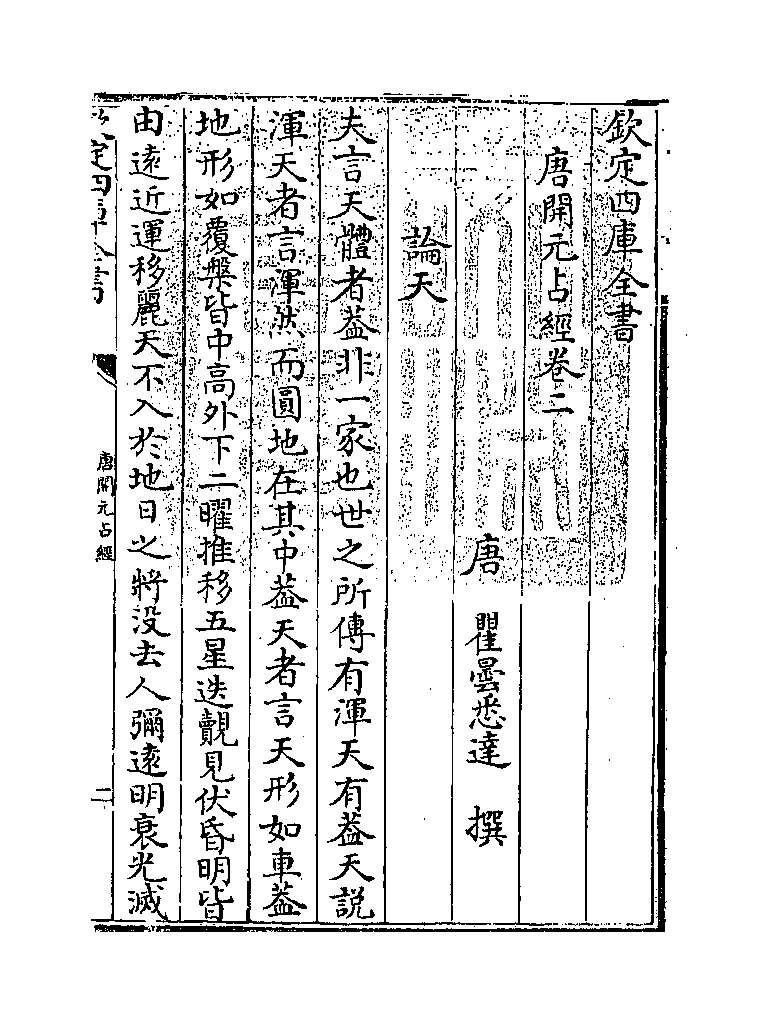 欽定四庫全書
唐開元占經卷二
唐　瞿曇悉達　撰
論天
夫言天體者葢非一家也世之所傳有渾天有葢天說
渾天者言渾然而圓地在其中葢天者言天形如車葢
地形如覆槃皆中高外下二曜推移五星迭覿見伏昏明皆
由遠近運移麗天不入於地日之將没去人彌遠明衰光滅
欽定四庫全書
唐開元占經
二